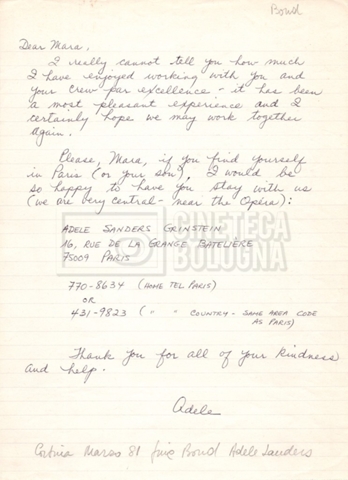 Bond
Dear Mara,
I really cannot tell you how much
I have enjoyed working with you and
your crew par excellence - it has been
a most pleasant experience and I
certainly hope we may work together
again.
Please, Mara, if you find yourself
in Paris (or your son), I would be
so happy to have you stay with us
(we are very central - near the Opéra):
ADELE SANDERS GRINSTEIN
16, RUE DE LA GRANGE BATELIÈRE
75009 PARIS
770-8634 (HOME TEL PARIS)
OR
431-9823 ( " " COUNTRY - SAME AREA CODE
AS PARIS)
Thank you for all of your kindness
and help.
Adele
Cortina Marzo 81 fine Bond Adele Sanders
CINETECA
BOLOGNA